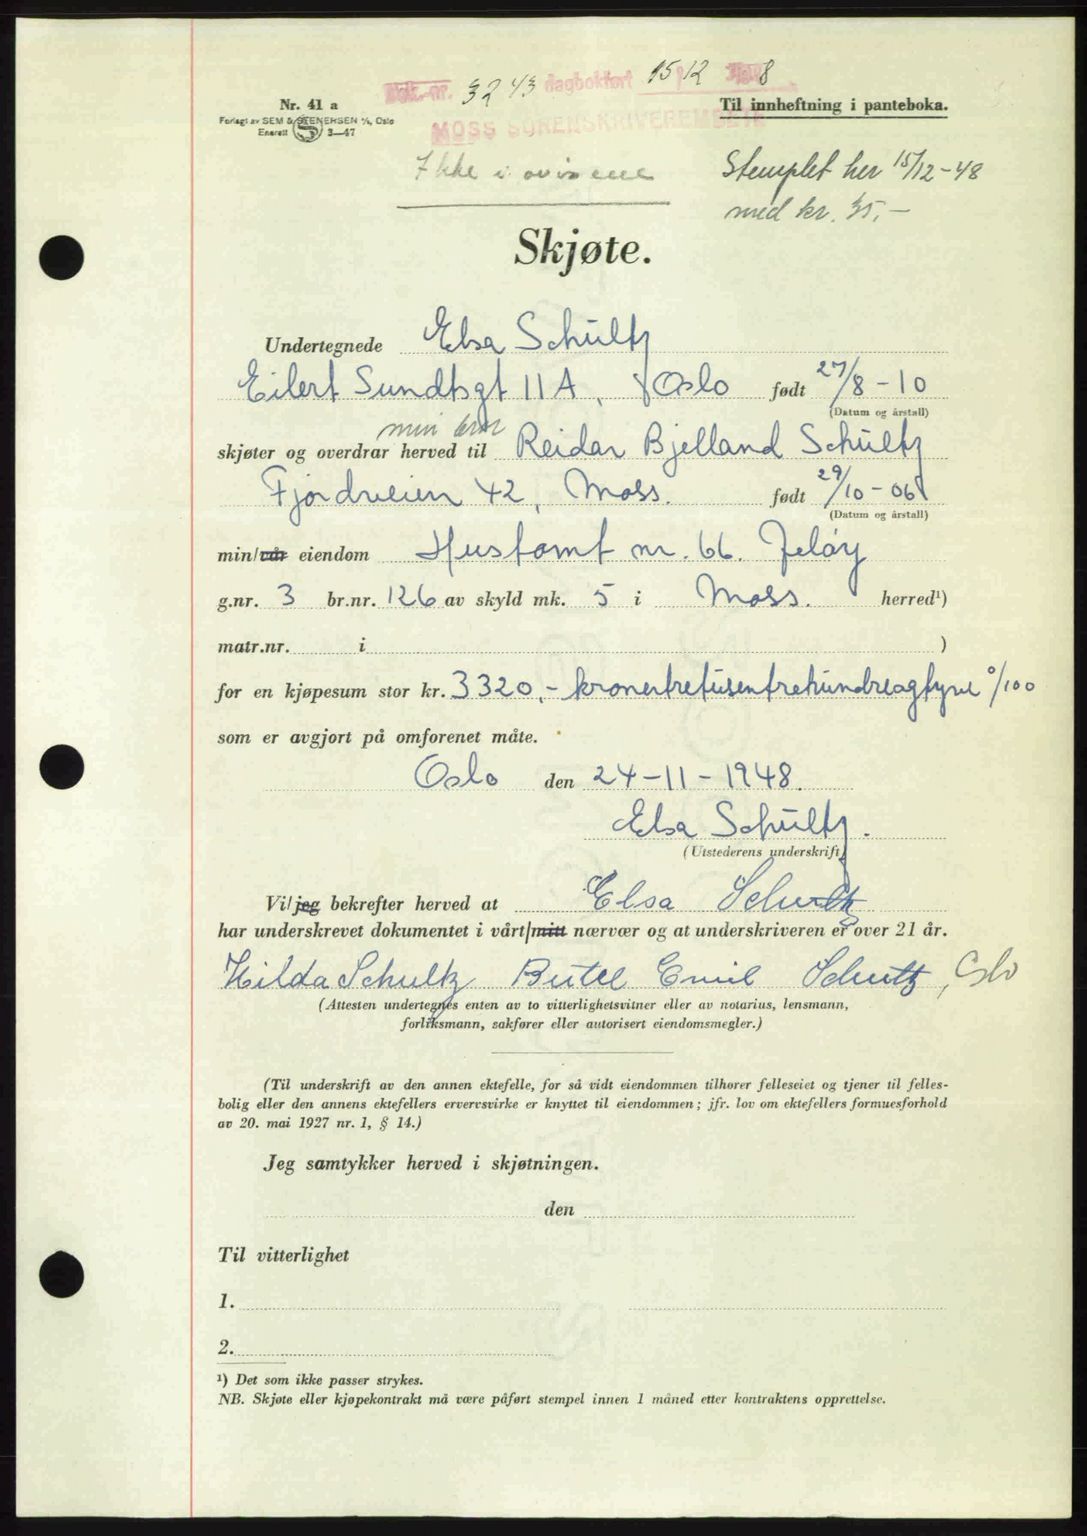 Dok.nr. 3243 dagbokført 15/12 1948
MOSS SORENSKRIVEREMBETE
Nr. 41 a
Forlagt av SEM & STENERSEN A/S, Oslo
Enerett 3-47
Til innheftning i panteboka.
Ikke i avisene
Stemplet her 15/12-48
med kr. 35,-
Skjøte.
Undertegnede Elsa Schultz
Eilert Sundtsgt 11A, Oslo født 27/8-10
(Datum og årstall)
min bror
skjøter og overdrar herved til Reidar Bjelland Schultz
Fjordveien 42, Moss. født 29/10-06
(Datum og årstall)
min/vår eiendom Hustomt nr. 66. Jeløy
g.nr. 3 br.nr. 126 av skyld mk. 5 i Moss. herred¹)
matr.nr. i )
for en kjøpesum stor kr. 3320,- kronertretusentrehundreogtyve 0/100
som er avgjort på omforenet måte.
Oslo den 24-11-1948.
Elsa Schultz.
(Utstederens underskrift)
Vi/jeg bekrefter herved at Elsa Schultz
har underskrevet dokumentet i vårt/mitt nærvær og at underskriveren er over 21 år.
Hilda Schultz Emil Schultz, Oslo
(Attesten undertegnes enten av to vitterlighetsvitner eller av notarius, lensmann,
forliksmann, sakfører eller autorisert eiendomsmegler.)
(Til underskrift av den annen ektefelle, for så vidt eiendommen tilhører felleseiet og tjener til felles-
bolig eller den annens ektefellers ervervsvirke er knyttet til eiendommen; jfr. lov om ektefellers formuesforhold
av 20. mai 1927 nr. 1, § 14.)
Jeg samtykker herved i skjøtningen.
den
Til vitterlighet
1.
2.
¹) Det som ikke passer strykes.
NB. Skjøte eller kjøpekontrakt må være påført stempel innen 1 måned etter kontraktens opprettelse.